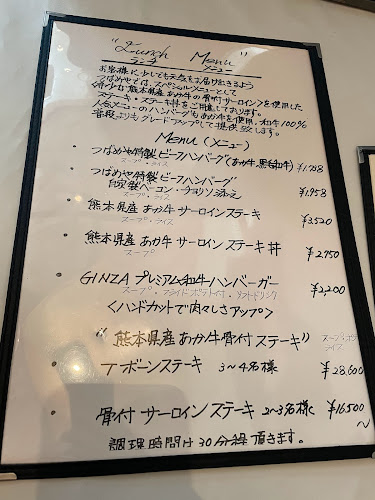 "Lunch Menu"
ランチ メニュー
お客様に少しでも元気をお届け出来るよう
つばめやでは、スペシャルメニューとして
<希少な熊本県産あか牛の骨付サーロイン>を使用した
ステーキ・ステーキ丼をご用意しております。
人気メニューのハンバーグもあか牛を使用、和牛100%
普段よりもグレードアップして提供致します。
Menu (メニュー)
・つばめや特製ビーフハンバーグ(あか牛、黒毛和牛) ¥1.758
スープ・ライス
・つばめや特製ビーフハンバーグ
自家製ベーコン・チョリソ添え ¥1.958
スープ・ライス
・熊本県産あか牛サーロインステーキ ¥3.520
スープ・ライス
・熊本県産あか牛サーロインステーキ丼 ¥2.750
スープ
・GINZAプレミアム和牛ハンバーガー ¥2,200
スープ・フライドポテト付・ソフトドリンク
<ハンドカットで肉々しさアップ>
"熊本県産あか牛骨付ステーキ" スープ ライス
・Tボーンステーキ 3〜4名様 ¥28,600
・骨付サーロインステーキ 2〜3名様 ¥16,500〜
調理時間は30分程頂きます。